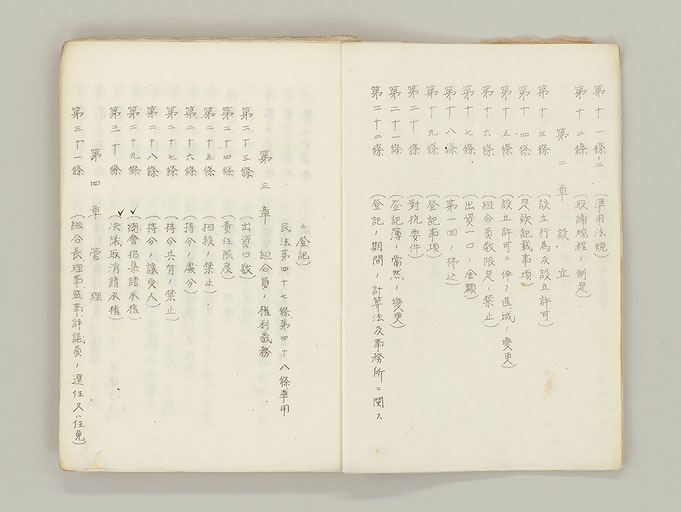 第十一條ノ二 (準用法規)
第十二條 (取締規程ノ制定)
第二章 設立
第十三條 (設立行為及設立許可)
第十四條 (定款記載事項)
第十五條 (設立許可ニ伴フ區域ノ変更)
第十六條 (組合員数限定ノ禁止)
第十七條 (出資一口ノ金額)
第十八條 (第一回ノ拂込)
第十九條 (登記事項)
第二十條 (對抗要件)
第二十一條 (登記簿ノ當然ノ変更)
第二十二條 (登記ノ期間ノ計算法及事務所ニ関スル登記)
民法第四十七條第四十八條準用
第三章 組合員ノ權利義務
第二十三條 (出資口数)
第二十四條 (責任限度)
第二十五條 (相殺ノ禁止)
第二十六條 (持分ノ處分)
第二十七條 (持分共有ノ禁止)
第二十八條 (持分ノ譲受人)
第二十九條 (總會招集請求權)
第三十條 (決議取消請求權)
第四章 管理
第三十一條 (組合長理事監事評議員ノ選任又ハ任免)